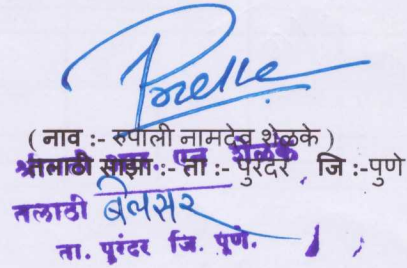 ( नाव :- रुपाली नामदेव शेळके )
तलाठी साझा :- ता :- पुरंदर जि :-पुणे
तलाठी बेलसर
ता. पुरंदर जि. पुणे.